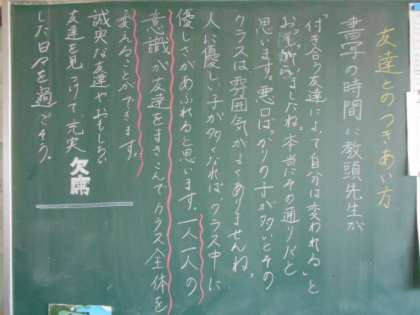 友達とのつきあい方
書写の時間に教頭先生が
「付き合う友達によって自分は変われる」と
お話がありましたね。本当にその通りだと
思います。悪口ばかりの子が多いとその
クラスは雰囲気がよくありませんね。
人に優しい子が多くなれば、クラス中に
優しさがあふれると思います。一人一人の
意識が友達をまきこんでクラス全体を
変えることができます。
誠実な友達やおもしろい
友達を見つけて充実
した日々を過ごそう。
欠席